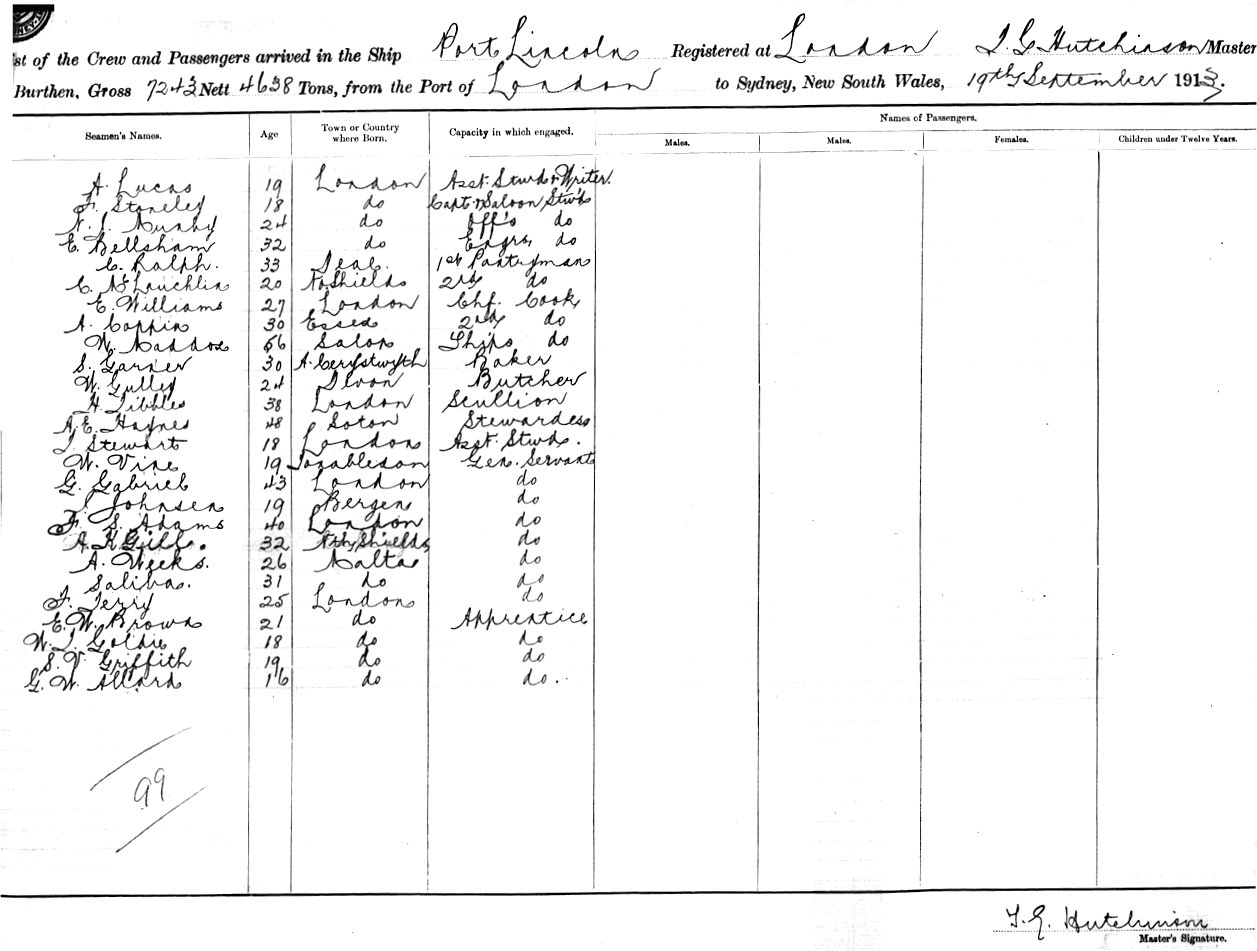 st of the Crew and Passengers arrived in the Ship Port Lincoln Registered at London Hutchinson Master
Burthen, Gross 7243 Nett 4638 Tons, from the Port of London to Sydney, New South Wales, 19th September 1913.
Seamen's Names. Age Town or Country where Born. Capacity in which engaged. Names of Passengers.
Males. Males. Females. Children under Twelve Years.
A. Lucas 19 London Asst. Stwd & Writer.
F. Stoneley 18 do Capt & Saloon Stwds
24 do Off's do
E. Bellsham 32 do Engrs do
C. Ralph. 33 Deal. 1st Pantryman
C. McLauchlin 20 No Shields 2nd do
E. Williams 27 London Chf. Cook
A. Coppin 30 Essex 2nd do
W. Maddox 56 Salop Ships do
S. Garner 30 Aberystwyth Baker
W. Gulley 24 Devon Butcher
H. Tibbles 38 London Scullion
A. E. Haynes 48 Soton Stewardess
Stewart 18 London Asst. Stwd.
W. Vine 19 Gen. Servant
G. Gabriel 43 London do
Johnsen 19 Bergen do
F. S. Adams 40 London do
A. H Gill. 32 Nth Shields do
A. Weeks. 26 Malta do
Saliba. 31 do do
F. Terry 25 London do
E. W. Brown 21 do Apprentice
Goldie 18 do do
S. V. Griffith 19 do do
G. W. Allard 16 do do.
99
Hutchinson
Master's Signature.